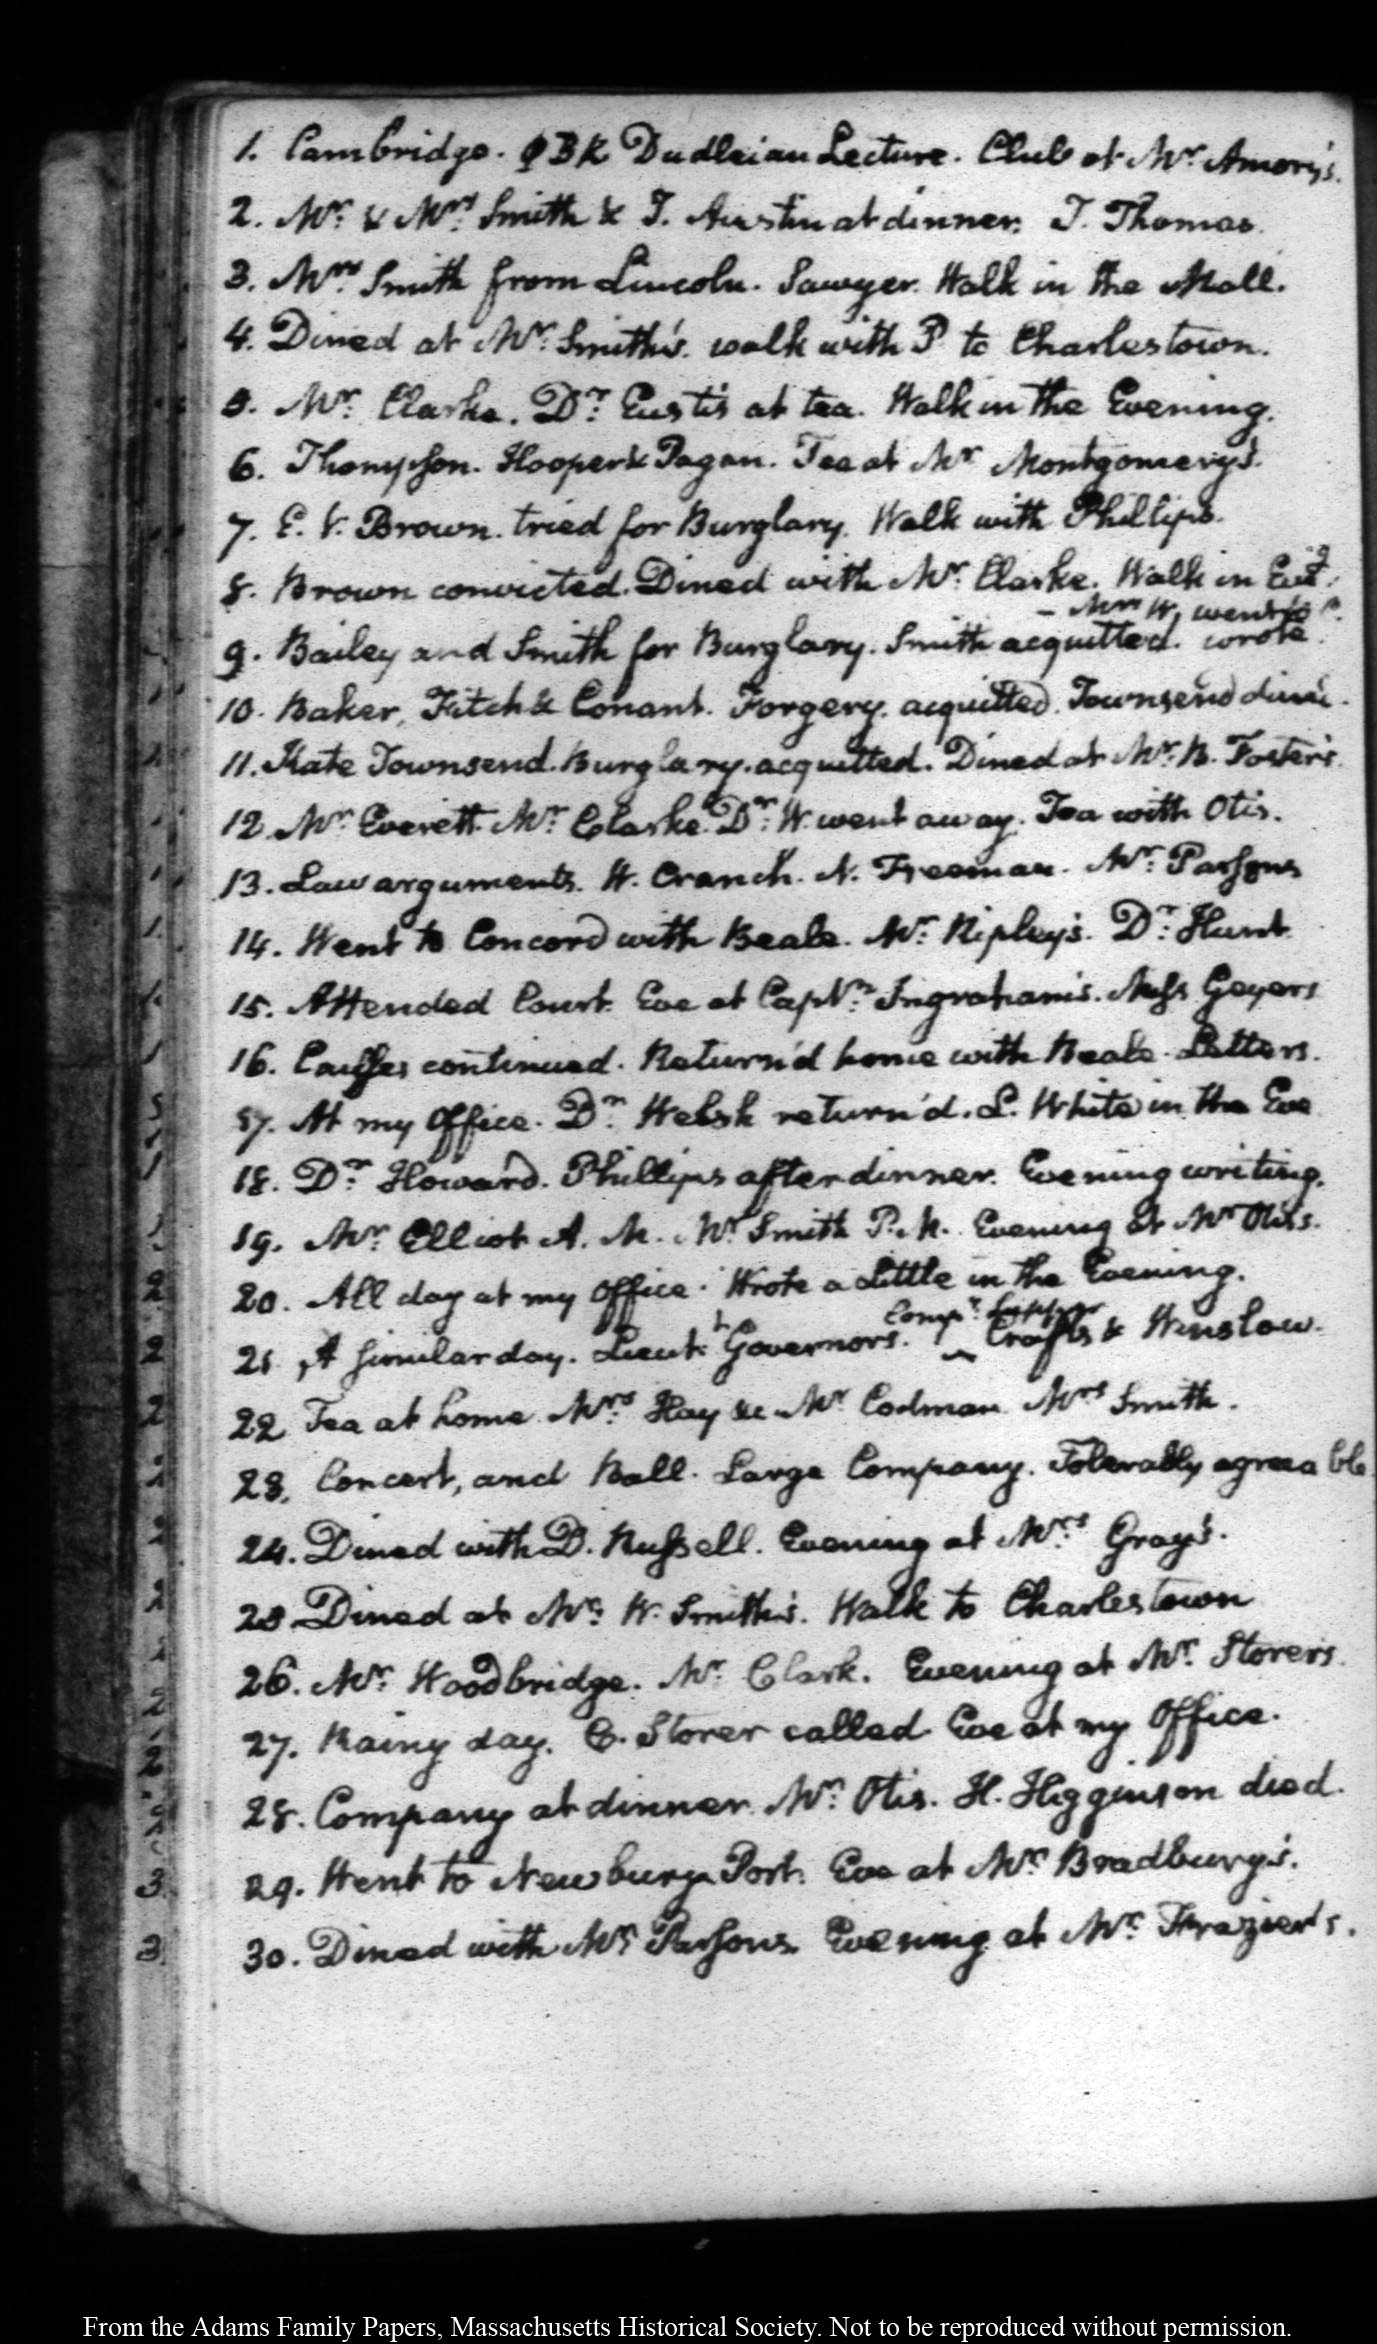 1. Cambridge. ΦBK Dudleian Lecture. Club at Mr. Amory's.
2. Mr. & Mrs. Smith & T. Austin at dinner. T. Thomas.
3. Mrs. Smith from Lincoln. Sawyer. Walk in the Mall.
4. Dined at Mr. Smith's. walk with P to Charlestown.
5. Mr. Clarke. Dr. Eustis at tea. Walk in the Evening.
6. Thompson. Hooper & Pagan. Tea at Mr Montgomery's.
7. E. V. Brown. tried for Burglary. Walk with Phillips.
8. Brown convicted. Dined with Mr. Clarke. Walk in Eveg.
– Mrs W. went to
9. Bailey and Smith for Burglary. Smith acquitted. wrote.
10. Baker, Fitch & Conant. Forgery. acquitted. Townsend
11. Kate Townsend. Burglary. acquitted. Dined at Mr. B. Foster's.
12. Mr. Everett. Mr. Clarke. Dr. W. went away. Tea with Otis.
13. Law arguments. W. Cranch. N. Freeman. Mr. Parsons
14. Went to Concord with Beale. Mr. Ripley's. Dr. Hunt.
15. Attended Court. Eve at Captn. Ingraham's. Miss Geyers
16. Causes continued. Return'd home with Beale. Letters.
17. At my Office. Dr. Welsh return'd. L. White in the Eve
18. Dr. Howard. Phillips after dinner. Evening writing.
19. Mr. Elliot A. M. Mr. Smith P. M. Evening at Mr Otis's.
20. All day at my Office. Wrote a little in the Evening.
Compy. Supper
21. A similar day. Lieutt Governors. Crafts & Winslow.
22. Tea at home. Mrs. Hay &c Mr Codman Mrs Smith.
23. Concert, and Ball. Large Company. Tolerably agreeable
24. Dined with D. Russell. Evening at Mrs. Gray's.
25 Dined at Mr. W. Smith's. Walk to Charlestown
26. Mr. Woodbridge. Mr. Clark. Evening at Mr. Storer's.
27. Rainy day. C. Storer called Eve at my Office.
28. Company at dinner. Mr. Otis. H. Higginson died.
29. Went to Newbury-Port. Eve at Mr. Bradbury's.
30. Dined with Mr. Parsons. Evening at Mr. Frazier's.
From the Adams Family Papers, Massachusetts Historical Society. Not to be reproduced without permission.